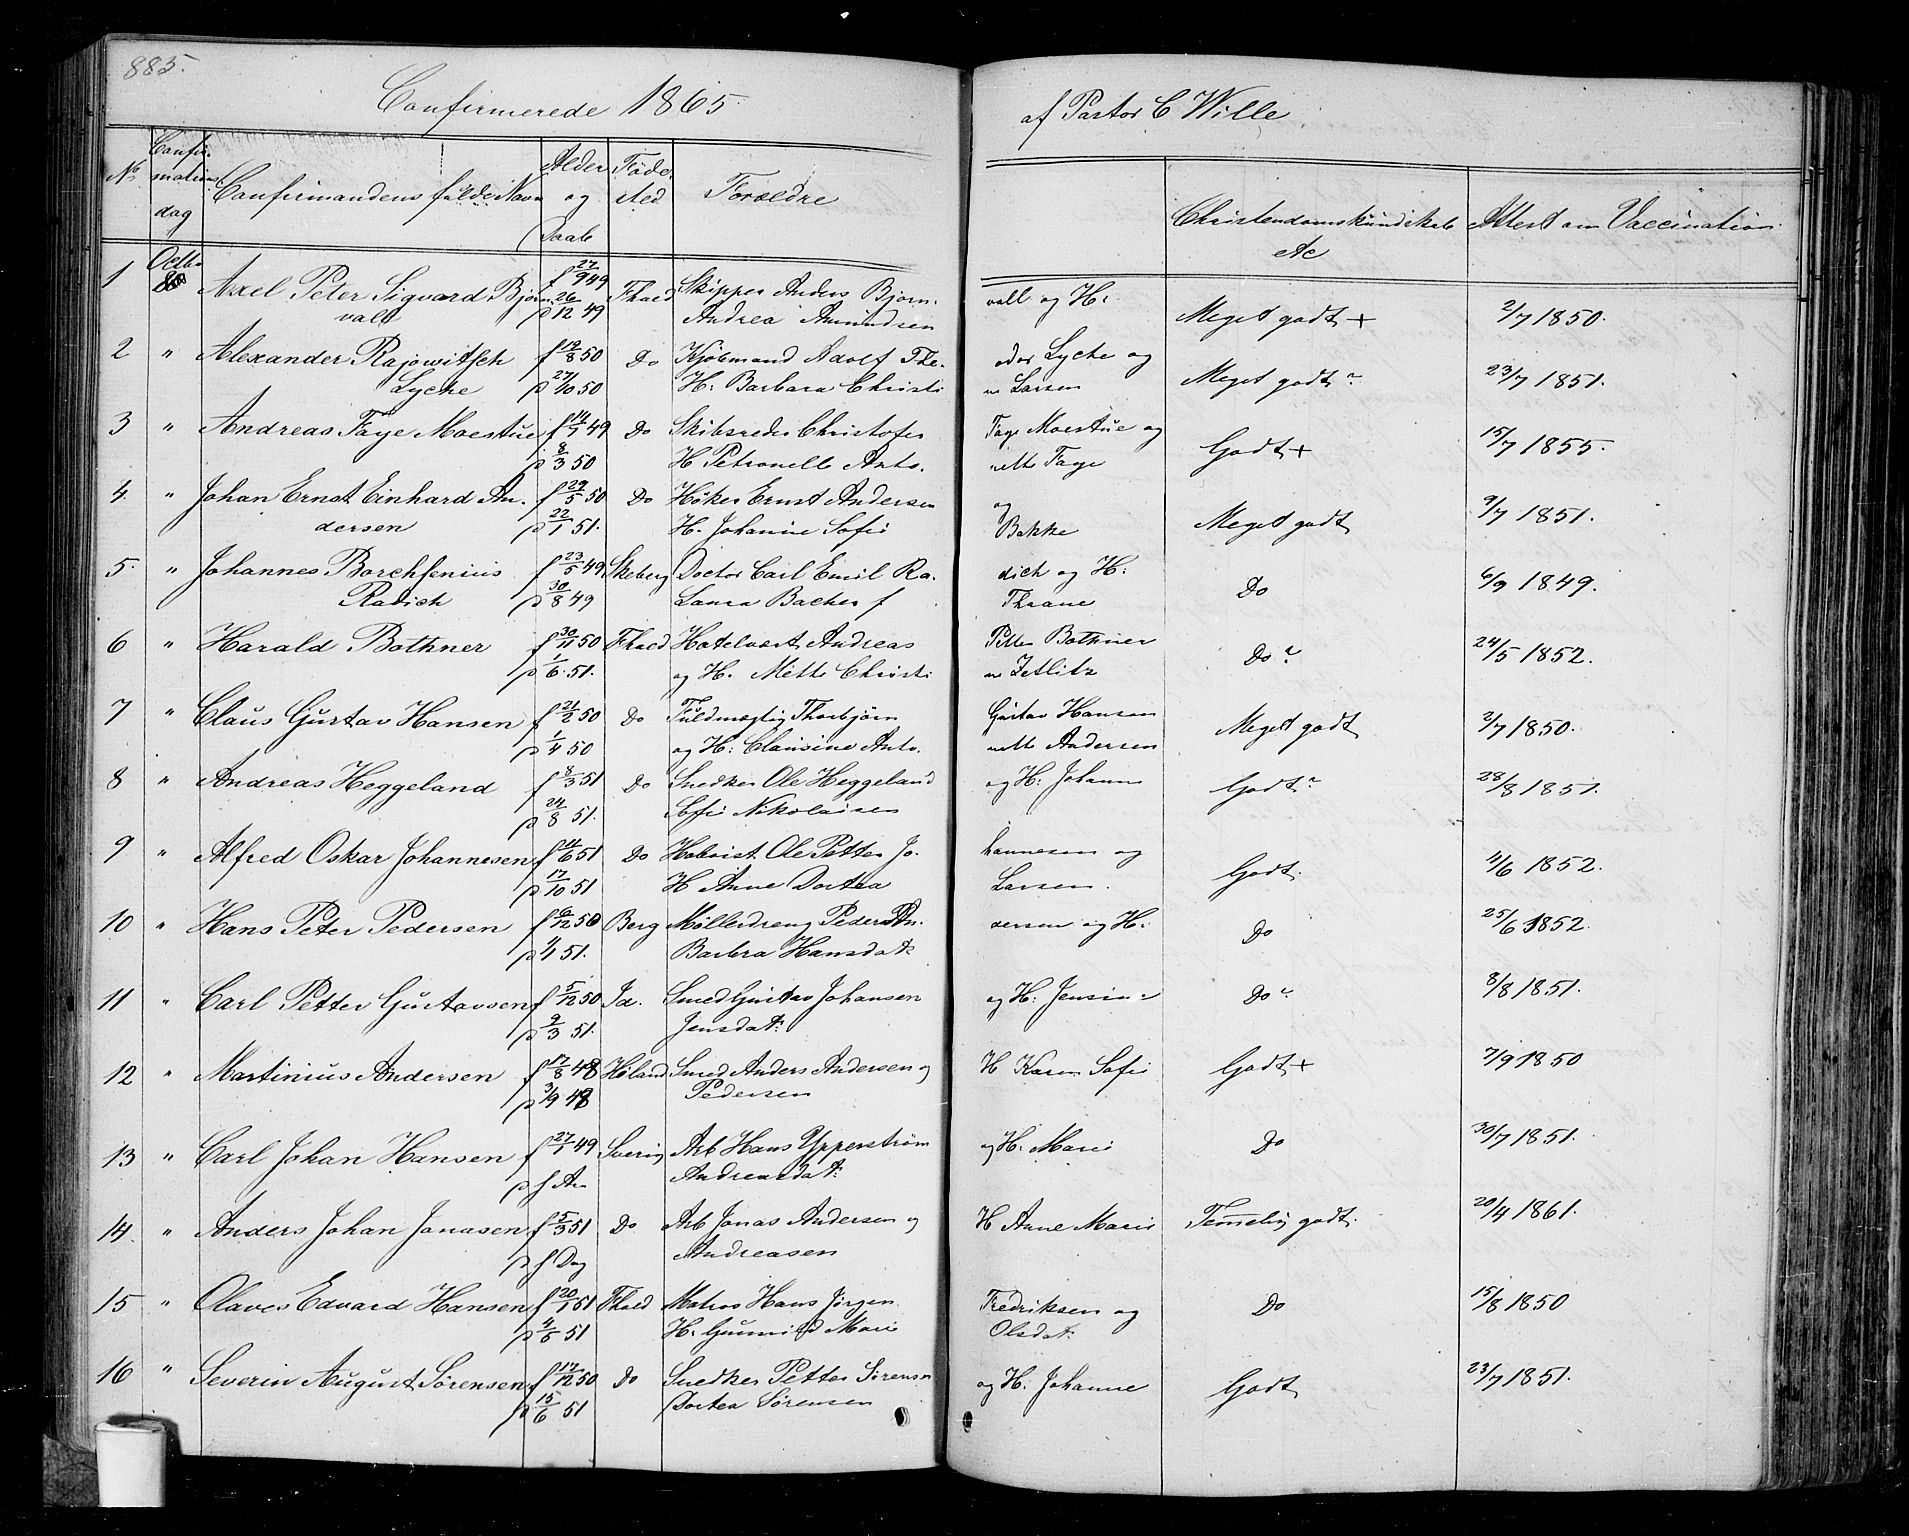 885.
Confirmerede 1865 af Pastor C Wille
No Confirmations dag Confirmandens fulde Navn Alder og Daab Fødested Forældre Christendomskundskab &c Attest om Vaccination
1 Octb 8 Axel Peter Sigvard Bjørn- f 27/9 49 Fhald Skipper Anders Bjørn- vall og H: Meget godt + 2/7 1850.
vall p 26/12 49 Andrea Amundsen
2 " Alexander Rajowitsch f 19/8 50 Do Kjøbmand Adolf The- odor Lyche og Meget godt 23/7 1851.
Lyche p 27/10 50 H: Barbara Christi ne Larsen
3 " Andreas Faye Moestue f 14/7 49 Do Skibsreder Christofer Faye Moestue og Godt + 15/7 1855.
p 8/3 50 H Petronelle Anto- nette Faye
4. " Johan Ernst Einhard An- f 29/5 50 Do Høker Ernst Andersen og Meget godt 9/7 1851.
dersen p 22/1 51. H. Johanne Sofie Bakke
5. " Johannes Borchsenius f 23/5 49 Skeberg Doctor Carl Emil Ra- dich og H: Do 6/9 1849.
Radich p 30/8 49 Laura Bacher f Thrane
6 " Harald Bothner f 30/11 50 Fhald Hotelvært Andreas Petter Bothner Do 24/5 1852.
p 1/6. 51. og H. Mette Christi ne Zetlitz
7 " Claus Gustav Hansen f 21/2 50 Do Fuldmægtig Thorbjørn Gustav Hansen Meget godt 2/7 1850.
p 1/4 50 og H: Clausine Anto- nette Andersen
8 " Andreas Heggeland f 8/3 51 Do Snedker Ole Heggeland og H: Johanne Godt 28/8 1851.
p 24/8 51. Sofie Nikolaisen
9 " Alfred Oskar Johannesen f 11/6 51 Do Ole Petter Jo- hannesen og Godt. 4/6 1852.
p 17/10 51 H Anne Dortea Larsen.
10 " Hans Peter Pedersen f 6/12 50 Berg Mølledreng Peder An- dersen og H: Do 25/6 1852.
p 4/4 51. Barbra Hansdat:
11 " Carl Petter Gustavsen f 5/12 50 Id. Smed Gustav Johansen og H: Jensine Do 8/8 1851.
p 9/3 51. Jensdat:
12 " Martinius Andersen f 17/8 48 Høland Smed Anders Andersen og H Karen Sofie Godt + 7/9 1850
p 3/9 48 Pedersen
13 " Carl Johan Hansen f 27/7 49 Sverig Arb Hans Ypperstrøm og H: Marie Do 30/7 1851.
p s Aar Andreasdat:
14. " Anders Johan Jonasen f 5/3 51 Do Arb Jonas Andersen og H Anne Marie Temmelig godt. 20/4 1861.
p s Dag Andreasen
15 " Olaves Edvard Hansen f 20/1 51 Fhald Matros Hans Jørgen Fredriksen og Do 15/8 1850
p 4/5 51 H: Gunnild Marie Olsdat:
16 " Severin August Sørensen f 17/12 50 Do Snedker Petter Sørensen og H: Johanne Godt 23/7 1851.
p 15/6 51 Dortea Sørensen